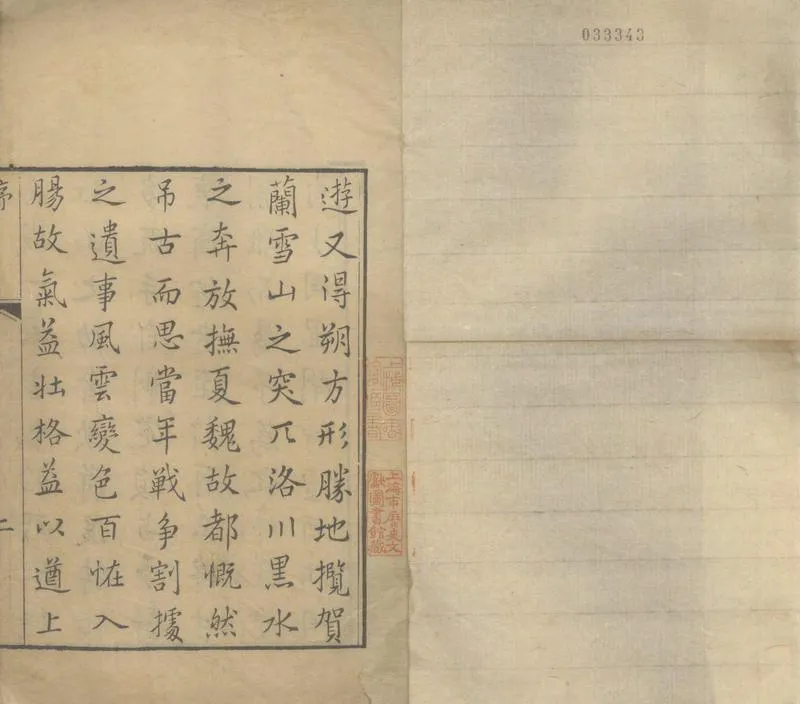 033343
遊又得朔方形勝地攬賀
蘭雪山之突兀洛川黑水
之奔放撫夏魏故都慨然
吊古而思當年戰争割據
之遺事風雲變色百怪入
腸故氣益壯格益以遒上
序
二
上海圖書館藏書
上海市歷史文
獻圖書館藏